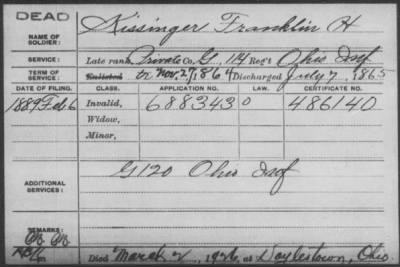 DEAD
NAME OF SOLDIER: Kissinger Franklin H
SERVICE: Late rank, Private Co. G, 114 Reg't Ohio Inf
TERM OF SERVICE: Enlisted tr Nov. 27, 1864 Discharged July 7, 1865
DATE OF FILING. CLASS. APPLICATION NO. LAW. CERTIFICATE NO.
1889 Feb 6 Invalid, 688343 0 486140
Widow,
Minor,
ADDITIONAL SERVICES: G 120 Ohio Inf
REMARKS:
Died March 2, 1926, at Doylestown, Ohio.